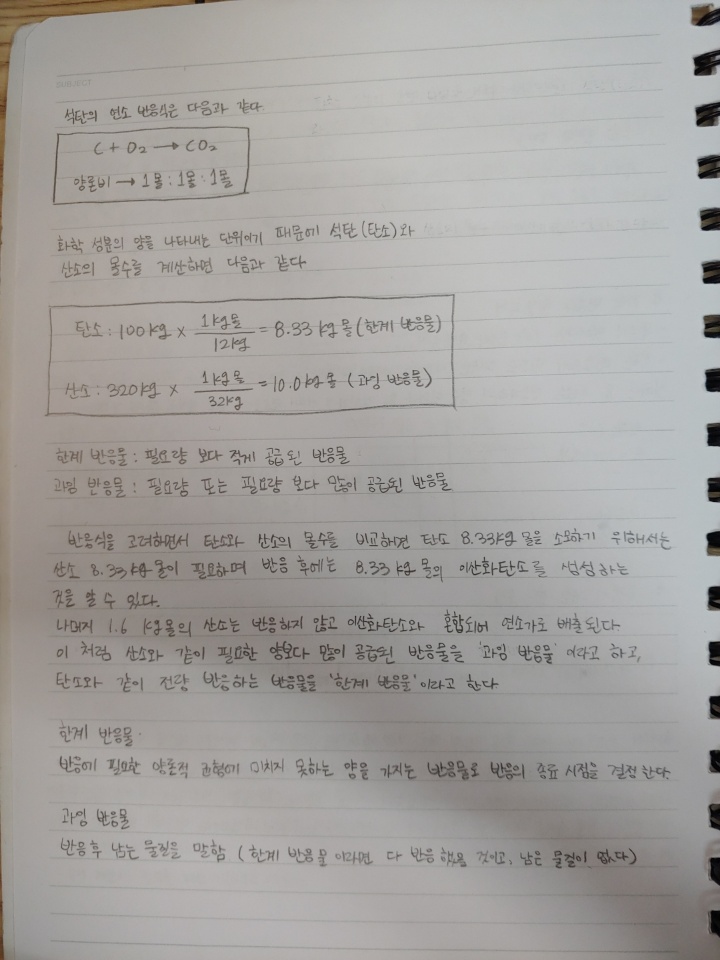 SUBJECT:
석탄의 연소 반응식은 다음과 같다.
C + O2 → CO2
양론비 → 1몰 : 1몰 : 1몰
화학 성분의 양을 나타내는 단위이기 때문에 석탄(탄소)와
산소의 몰수를 계산하면 다음과 같다
탄소 : 100kg × 1kg몰/12kg = 8.33 kg몰 (한계 반응물)
산소 : 320kg × 1kg몰/32kg = 10.0kg몰 (과잉 반응물)
한계 반응물 : 필요량 보다 적게 공급된 반응물
과잉 반응물 : 필요량 또는 필요량 보다 많이 공급된 반응물
반응식을 고려하면서 탄소와 산소의 몰수를 비교하면 탄소 8.33kg몰을 소모하기 위해서는
산소 8.33kg몰이 필요하며 반응 후에는 8.33 kg몰의 이산화탄소를 생성하는
것을 알 수 있다.
나머지 1.6 kg몰의 산소는 반응하지 않고 이산화탄소와 혼합되어 연소가로 배출된다
이 처럼 산소와 같이 필요한 양보다 많이 공급된 반응물을 '과잉 반응물' 이라고 하고,
탄소와 같이 전량 반응하는 반응물을 '한계 반응물'이라고 한다
한계 반응물.
반응에 필요한 양론적 균형에 미치지 못하는 양을 가지는 반응물로 반응의 종료 시점을 결정한다.
과잉 반응물
반응후 남는 물질을 말함 (한계 반응물 이라면 다 반응했을 것이고, 남은 물질이 없다)